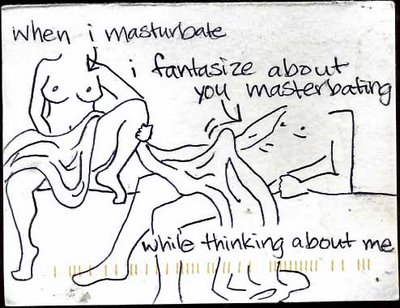 when i masturbate
i fantasize about
you masterbating
while thinking about me